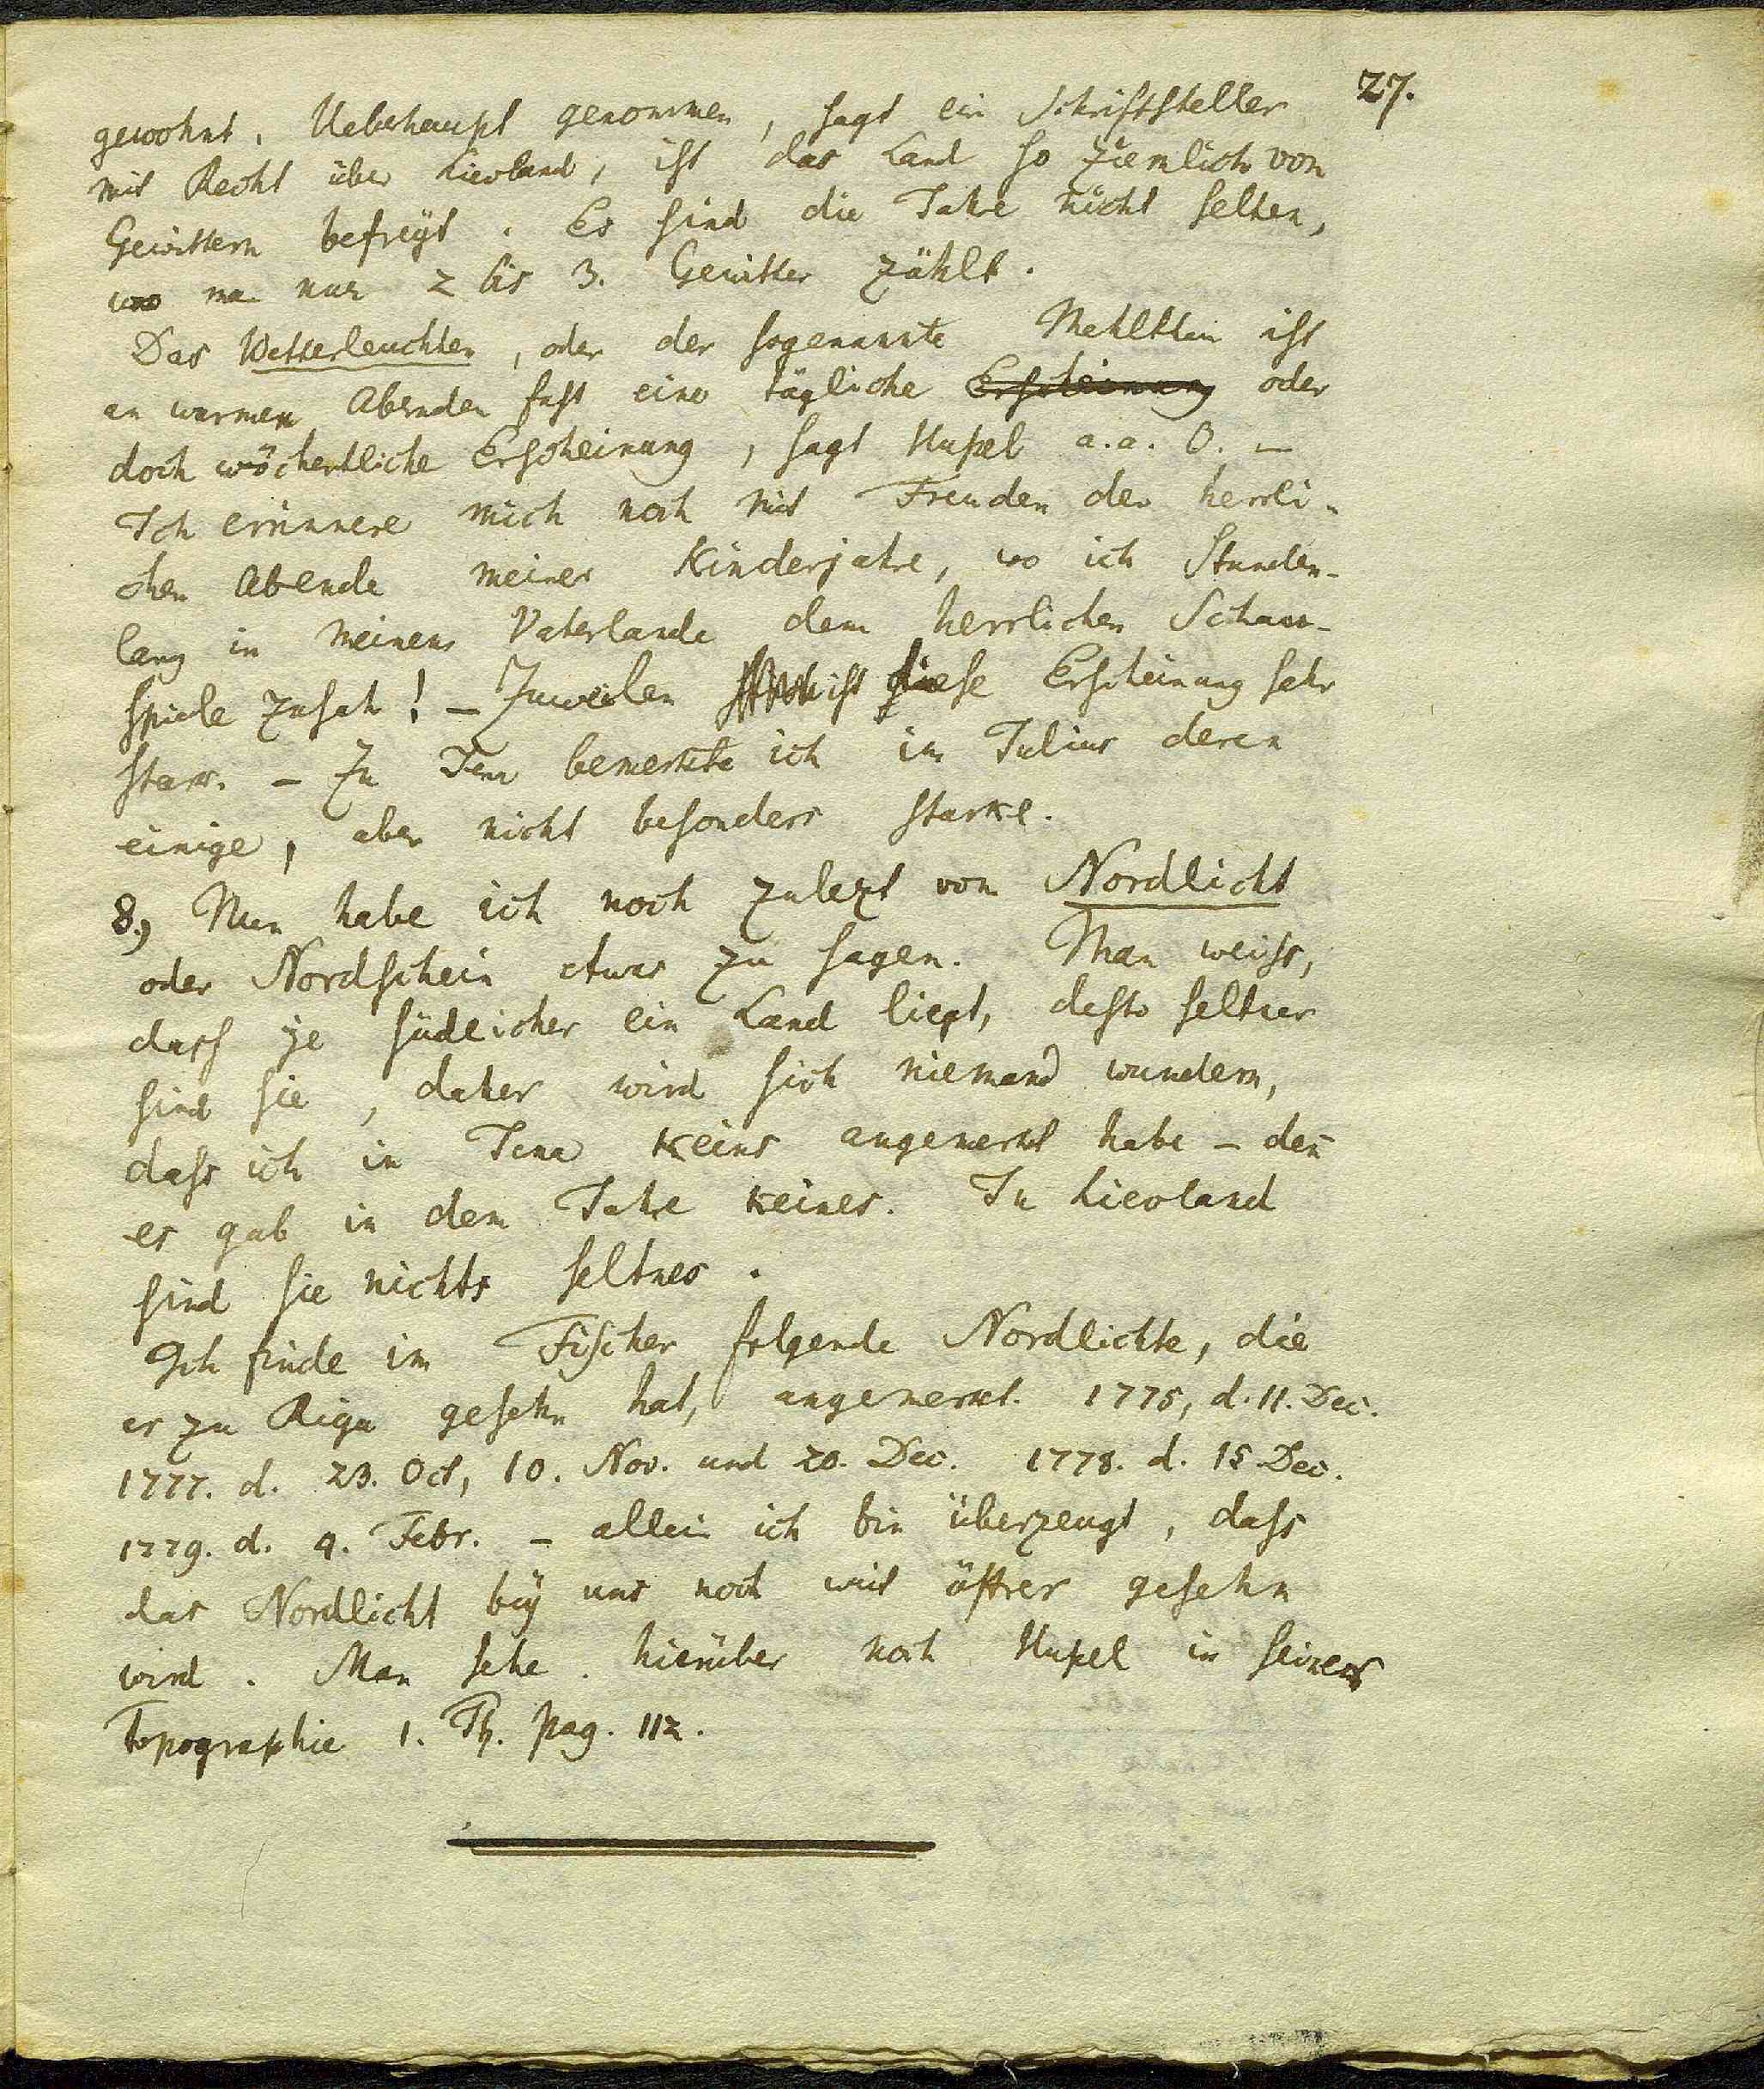 27.
gewohnt. Ueberhaupt genommen, sagt ein Schriftsteller
mit Recht über Lievland, ist das Land so ziemlich von
Gewittern befreyt. Es sind die Jahre nicht selten,
wo man nur 2 bis 3. Gewitter zählt.
Das Wetterleuchten, oder der sogenannte Mehlthau ist
an warmen Abenden fast eine tägliche Erscheinung oder
doch wöchentliche Erscheinung, sagt Hupel a. a. O. —
Ich erinnere mich noch mit Freuden der herrli-
chen Abende meiner Kinderjahre, wo ich Stunden-
lang in meinem Vaterlande dem herrlichen Schau-
spiele zusah! — Zuweilen ist diese Erscheinung sehr
stark. — In Jena bemerkte ich im Julius deren
einige, aber nicht besonders starke.
8., Nun habe ich noch zulezt vom Nordlicht
oder Nordschein etwas zu sagen. Man weiss,
dass je südlicher ein Land liegt, desto seltner
sind sie, daher wird sich niemand wundern,
dass ich in Jena keins angemerkt habe — den̄
es gab in dem Jahre keines. In Lievland
sind sie nichts seltnes.
Ich finde im Fischer folgende Nordlichte, die
er zu Riga gesehn hat, angemerkt. 1775, d. 11. Dec.
1777. d. 23. Oct, 10. Nov. und 20. Dec. 1778. d. 15 Dec.
1779. d. 9. Febr. — allein ich bin überzeugt, dass
das Nordlicht bey uns noch weit öftrer gesehn
wird. Man sehe hierüber noch Hupel in seiner
Topographie 1. Th. pag. 112.